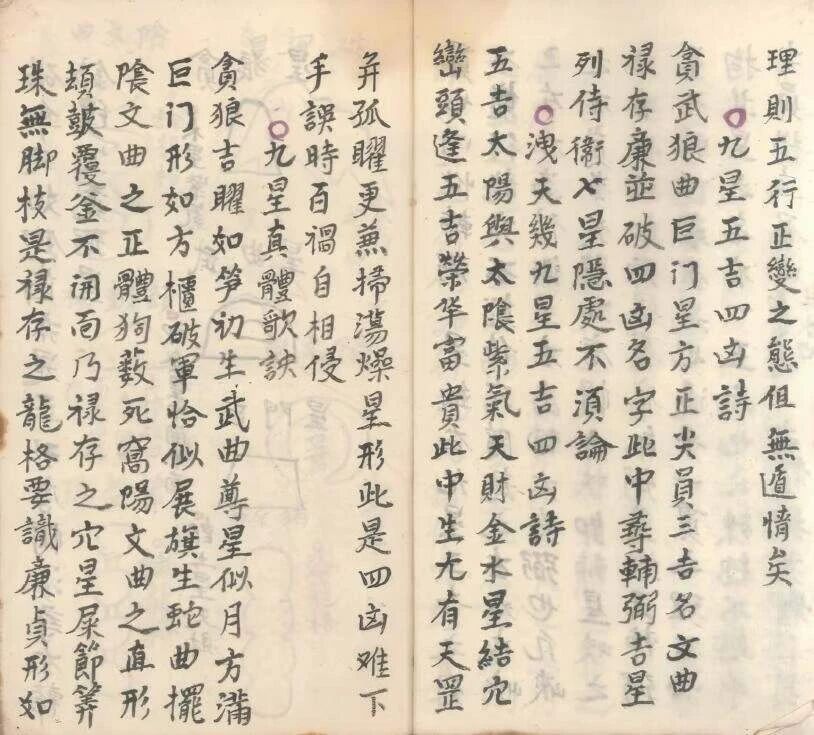 理則五行正變之態但無遁情矣
九星五吉四凶詩
貪武狼曲巨门星方正尖員三吉名文曲
禄存廉並破四凶名字此中尋輔弼吉星
列侍衛七星隱處不湏論
洩天幾九星五吉四凶詩
五吉太陽與太陰紫氣天財金水星結穴
巒頭逢五吉榮华富貴此中生尢有天罡
并孤曜更兼掃蕩燥星形此是四凶难下
手誤時百禍自相侵
九星真體歌訣
貪狼吉曜如笋初生武曲尊星似月方滿
巨门形如方櫃破軍恰似展旗生蛇曲擺
陰文曲之正體狗薮死窩陽文曲之直形
頬皷覆釜不開面乃禄存之穴星屎節筭
珠無脚枝是禄存之龍格要識廉貞形如